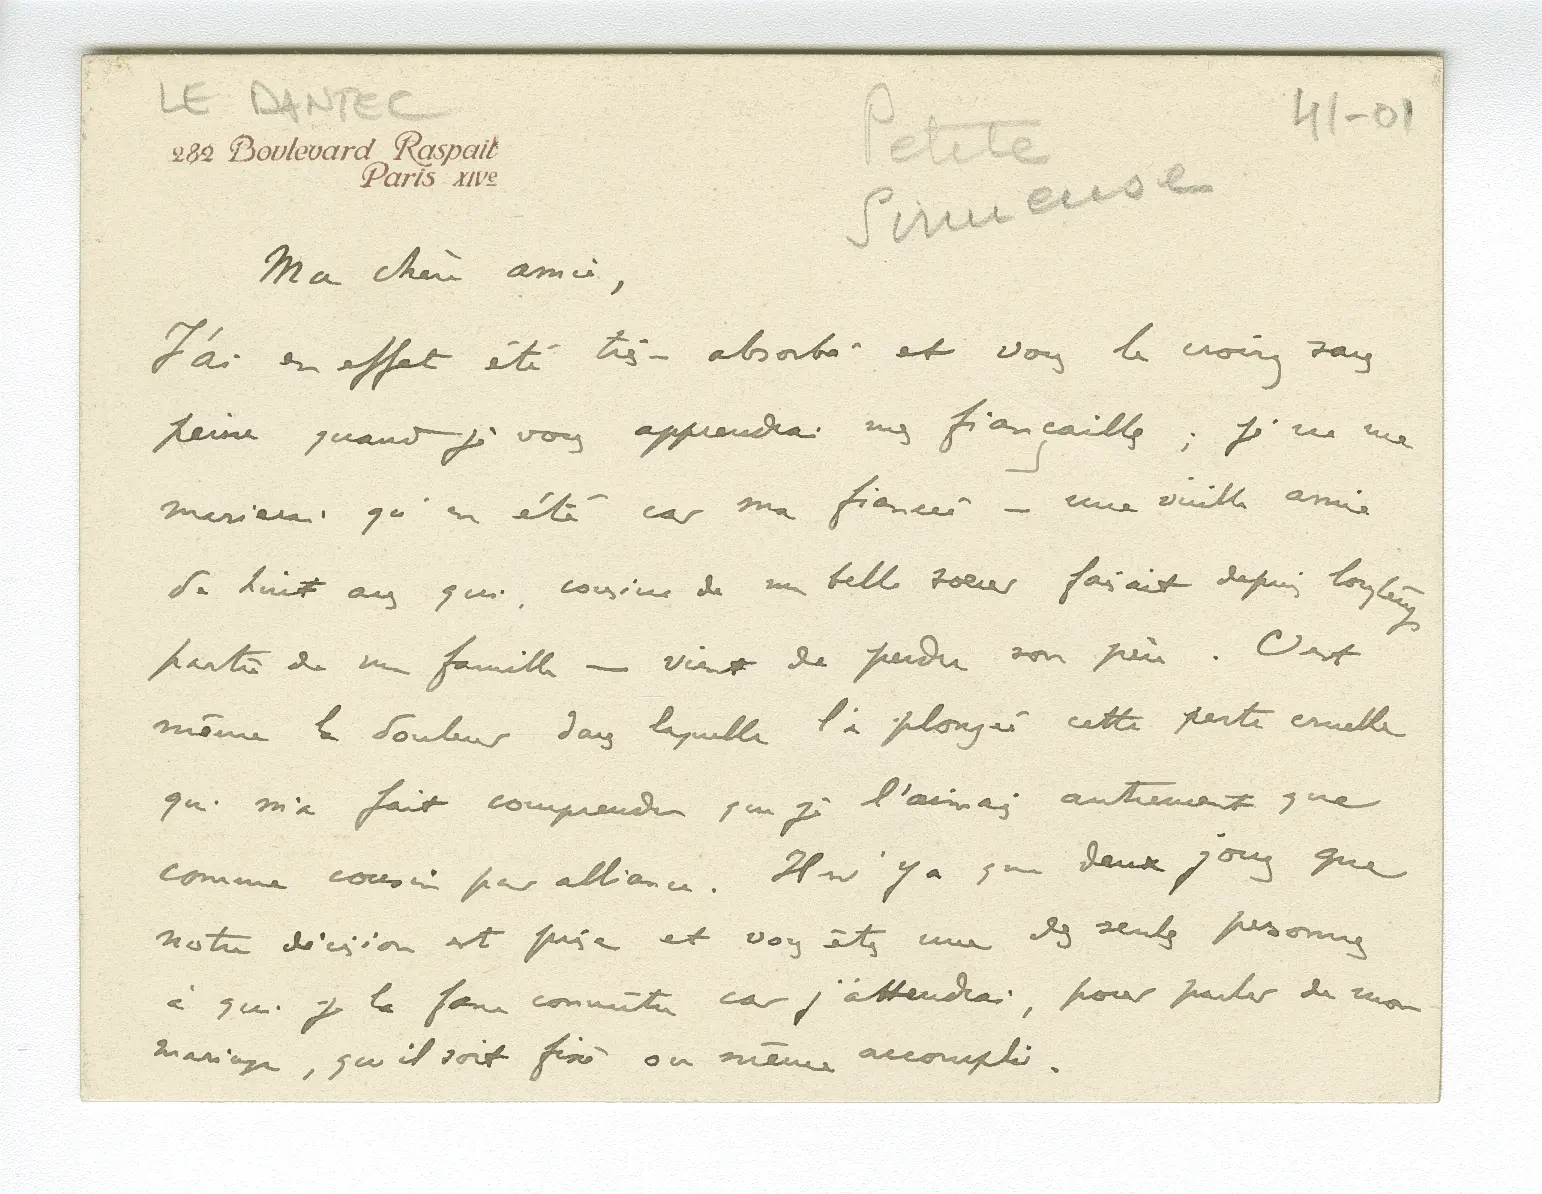 LE DANTEC
282 Boulevard Raspail
Paris XIVe
Petite
41-01
Ma chère amie,
J'ai en effet été très absorbé et vous le croirez sans
peine quand je vous apprendrai mes fiançailles ; je ne me
marierai qu'en été car ma fiancée – une vieille amie
de huit ans qui, cousine de ma belle soeur faisait depuis longtemps
partie de ma famille – vient de perdre son père. C'est
même la douleur dans laquelle l'a plongée cette perte cruelle
qui m'a fait comprendre que je l'aimais autrement que
comme cousin par alliance. Il n'y a que deux jours que
notre décision est prise et vous êtes une des seules personnes
à qui je la fasse connaître car j'attendrai, pour parler de mon
mariage, qu'il soit fixé ou même accompli.